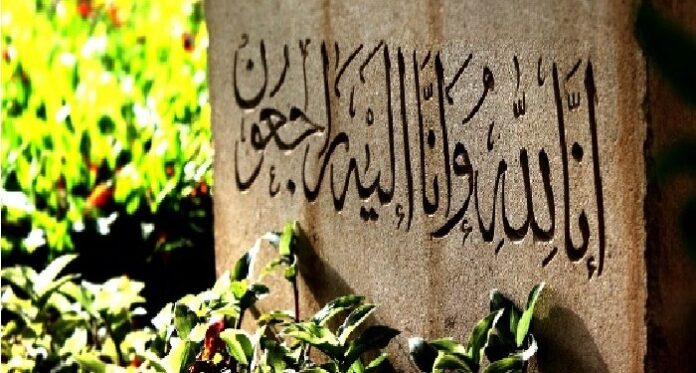 إنَّا لِلّٰهِ وَإنَّا إلَيْهِ رَاجعُونَ